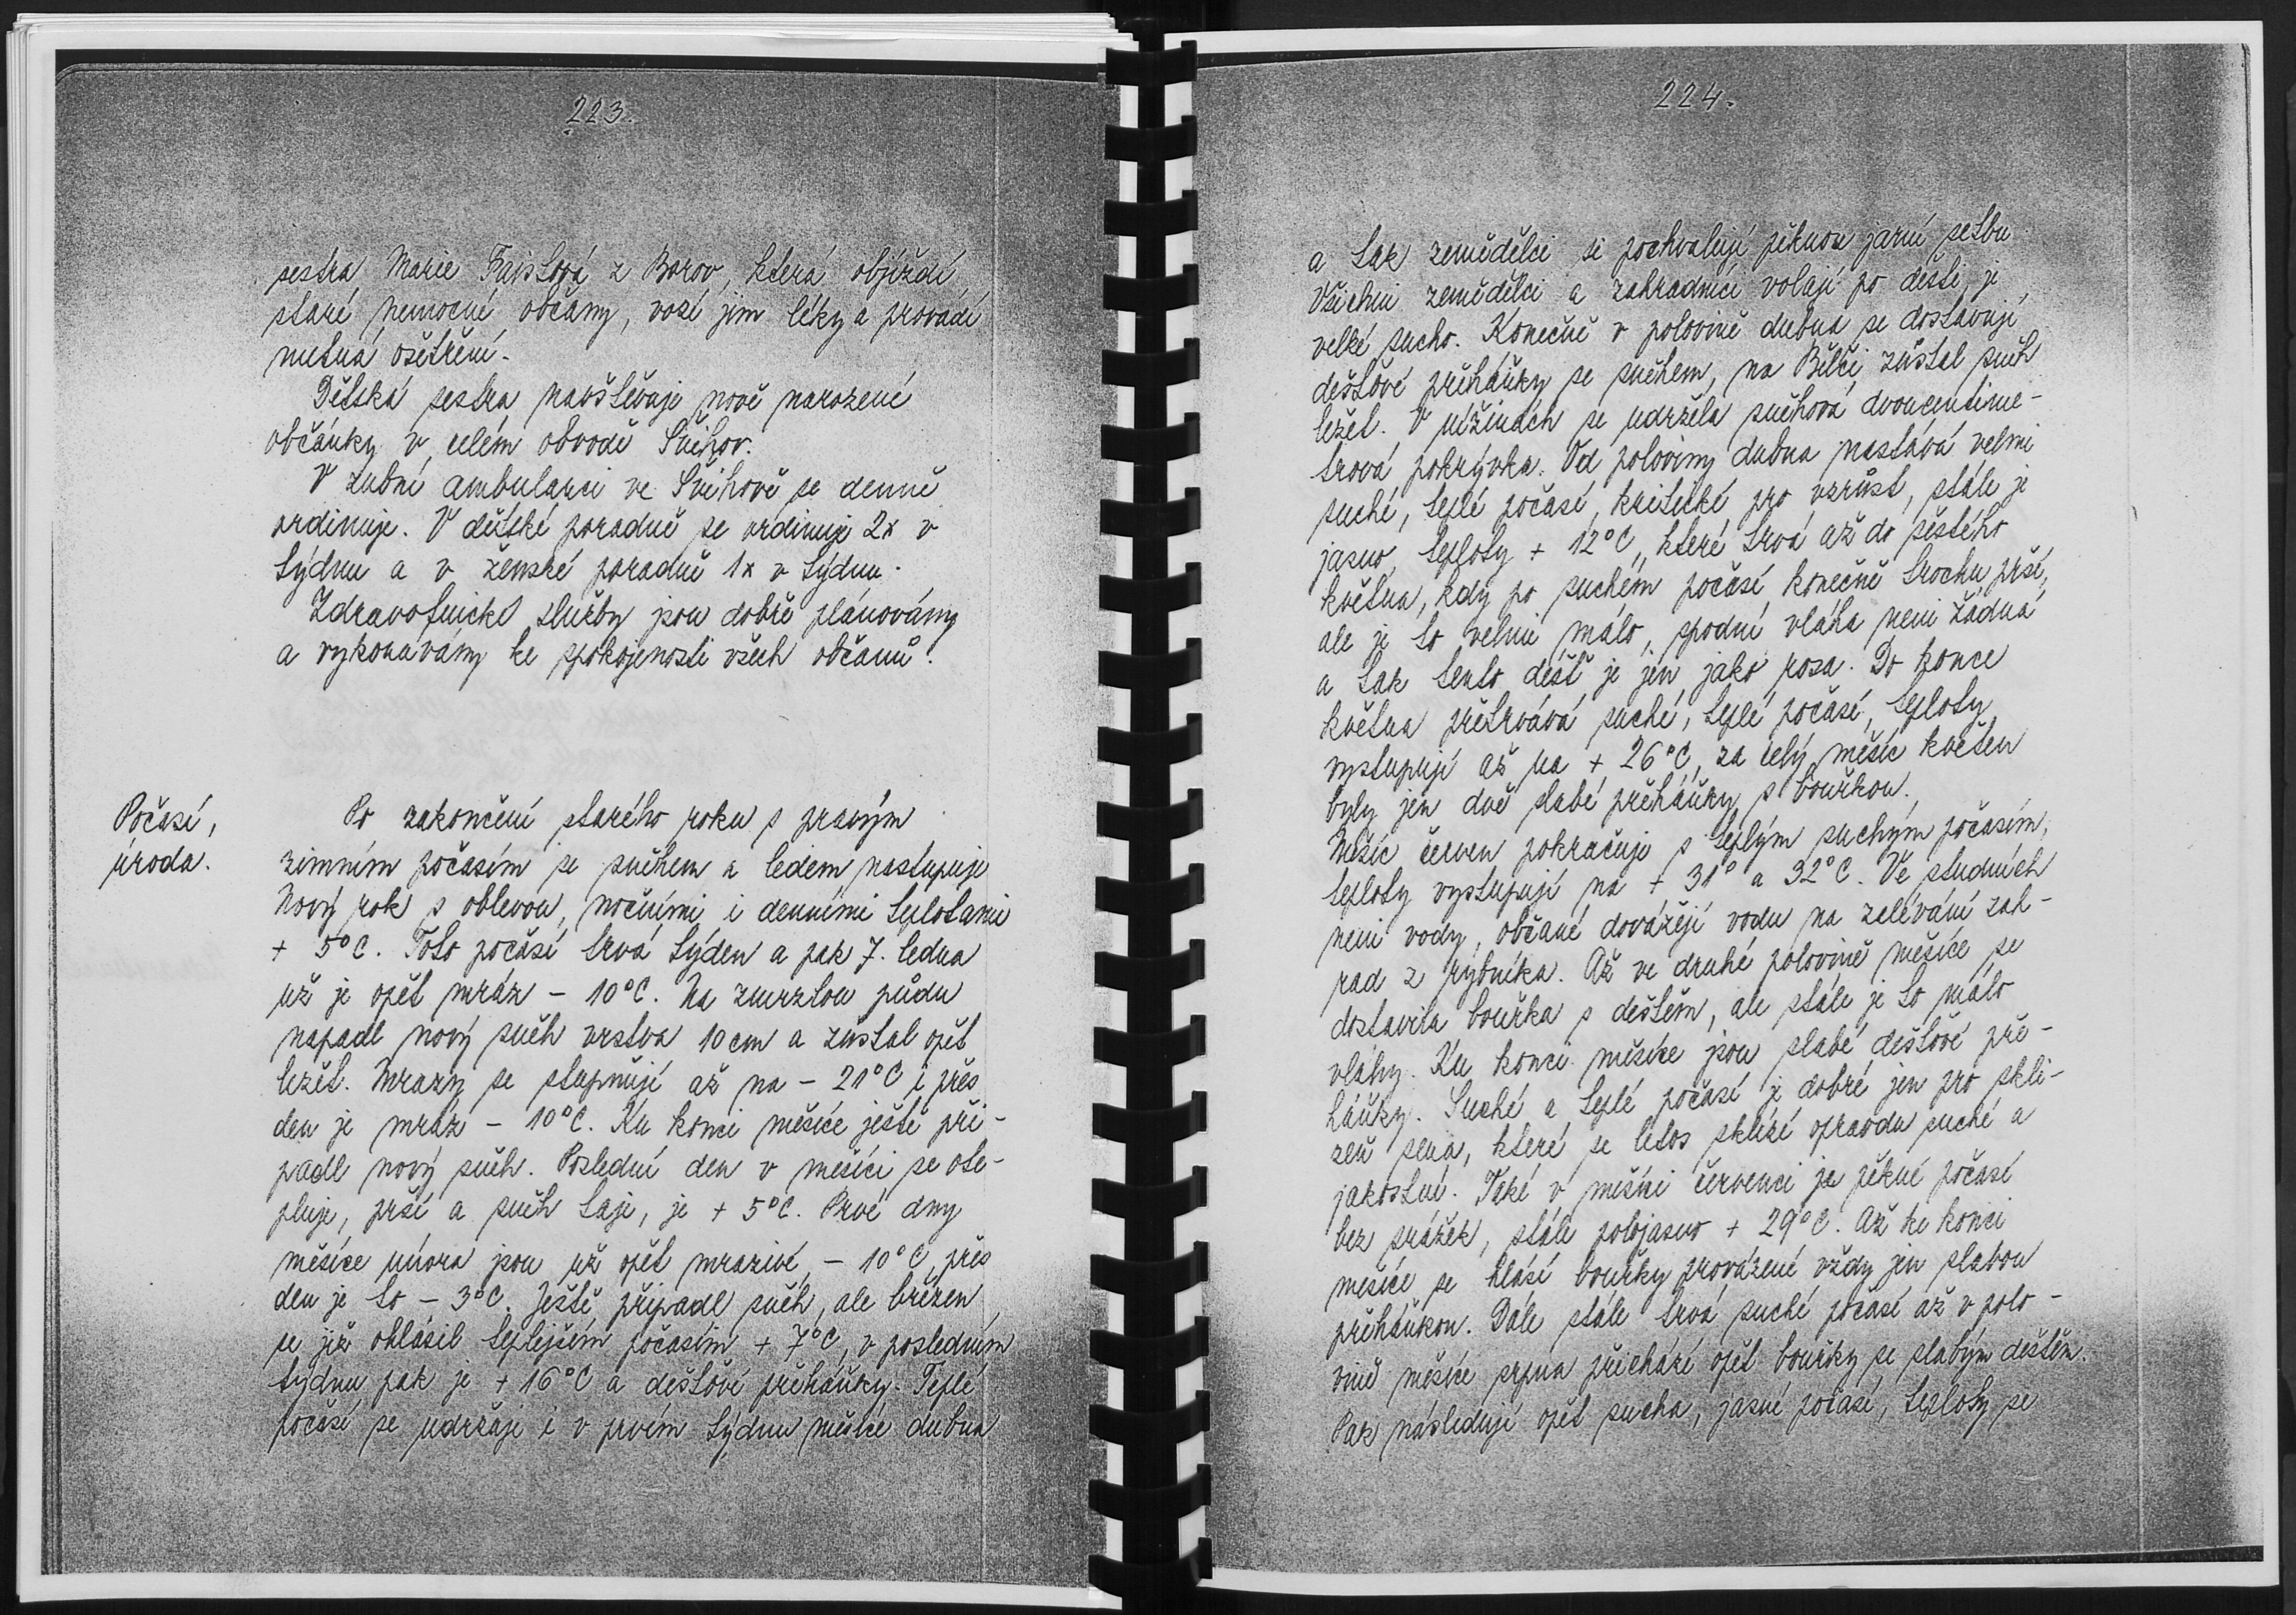 223.
sestra Marie Fajstová z Borov, která objíždí
staré nemocné občany, vozí jim léky a provádí
nutná ošetření.
Dětská sestra navštěvuje nově narozené
občánky v celém obvodě Švihov.
V zubní ambulanci ve Švihově se denně
ordinuje. V dětské poradně se ordinuje 2x v
týdnu a v ženské poradně 1x v týdnu.
Zdravotnické služby jsou dobře plánovány
a vykonávány ke spokojenosti všech občanů.
Počasí,
úroda.
Po zakončení starého roku s pravým
zimním počasím se sněhem a ledem nastupuje
Nový rok s oblevou, nočními i denními teplotami
+ 5°C. Toto počasí trvá týden a pak 7. ledna
už je opět mráz – 10°C. Na zmrzlou půdu
napadl nový sníh vrstva 10 cm a zůstal opět
ležet. Mrazy se stupňují až na – 21°C i přes
den je mráz – 10°C. Ku konci měsíce ještě při-
padl nový sníh. Poslední den v měsíci se ote-
pluje, prší a sníh taje, je + 5°C. Prvé dny
měsíce února jsou už opět mrazivé, – 10°C, přes
den je to – 3°C. Ještě připadl sníh, ale březen
se již ohlásil teplejším počasím + 7°C, v posledním
týdnu pak je + 16°C a dešťové přeháňky. Teplé
počasí se udržuje i v prvém týdnu měsíce dubna
224.
a tak zemědělci si pochvalují pěknou jarní setbu.
Všichni zemědělci a zahradníci volají po dešti, je
velké sucho. Konečně v polovině dubna se dostavují
dešťové přeháňky se sněhem, na Bělči zůstal sníh
ležet. V nížinách se udržela sněhová dvoucentime-
trová pokrývka. Od poloviny dubna nastává velmi
suché, teplé počasí, kritické pro vzrůst, stále je
jasno, teploty + 12°C, které trvá až do šestého
května, kdy po suchém počasí konečně trochu prší,
ale je to velmi málo, spodní vláha není žádná
a tak tento déšť je jen jako rosa. Do konce
května přetrvává suché, teplé počasí, teploty
vystupují až na + 26°C, za celý měsíc květen
byly jen dvě slabé přeháňky s bouřkou.
Měsíc červen pokračuje s teplým suchým počasím,
teploty vystupují na + 31° a 32°C. Ve studních
není vody, občané dovážejí vodu na zalévání zah-
rad z rybníka. Až ve druhé polovině měsíce se
dostavila bouřka s deštěm, ale stále je to málo
vláhy. Ku konci měsíce jsou slabé dešťové pře-
háňky. Suché a teplé počasí je dobré jen pro skli-
zeň sena, které se letos sklízí opravdu suché a
jakostní. Také v měsíci červenci je pěkné počasí
bez srážek, stále polojasno + 29°C. Až ke konci
měsíce se hlásí bouřky provázené vždy jen slabou
přeháňkou. Dále stále trvá suché počasí až v polo-
vině měsíce srpna přichází opět bouřky se slabým deštěm.
Pak následují opět sucha, jasné počasí, teploty se